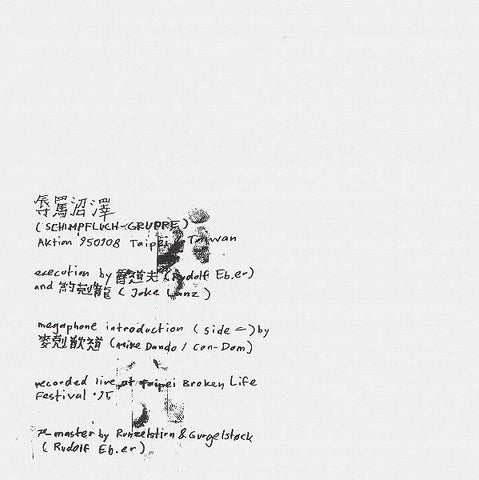 辱罵沼澤
(SCHIMPFLUCH-GRUPPE)
Aktion 950908 Taipei Taiwan
execution by 魯道夫 (Rudolf Eb.er)
and 約剋龍 (Joke Lanz)
megaphone introduction (side 一) by
麥剋歎道 (Mike Dando / Con-Dom)
recorded live at Taipei Broken Life
Festival '95
master by Runzelstirn & Gurgelstøck
(Rudolf Eb.er)